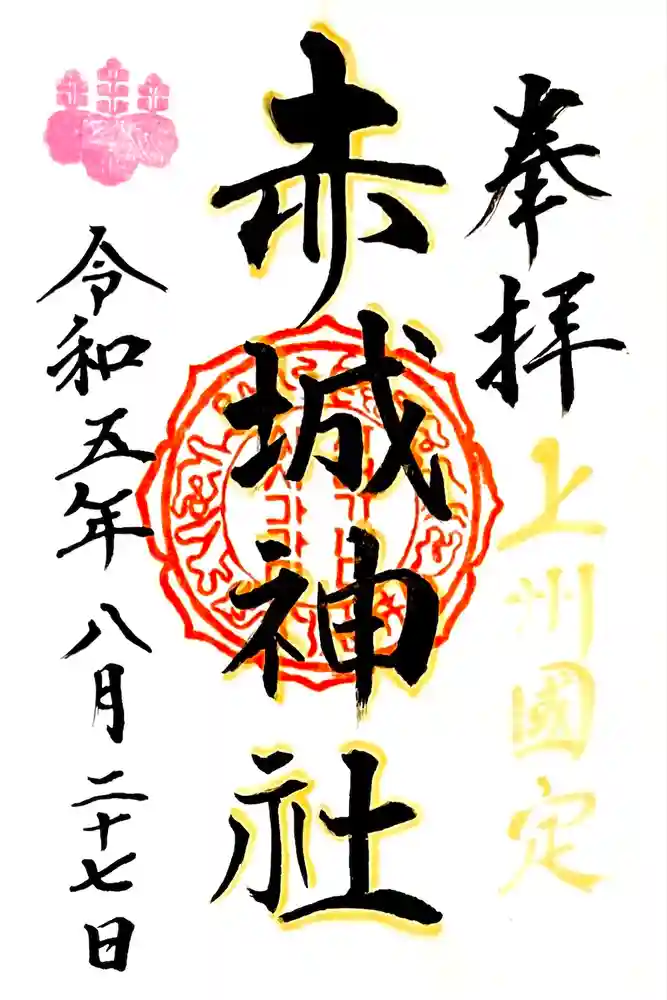 奉拝
上州國定
赤城神社
令和五年八月二十七日